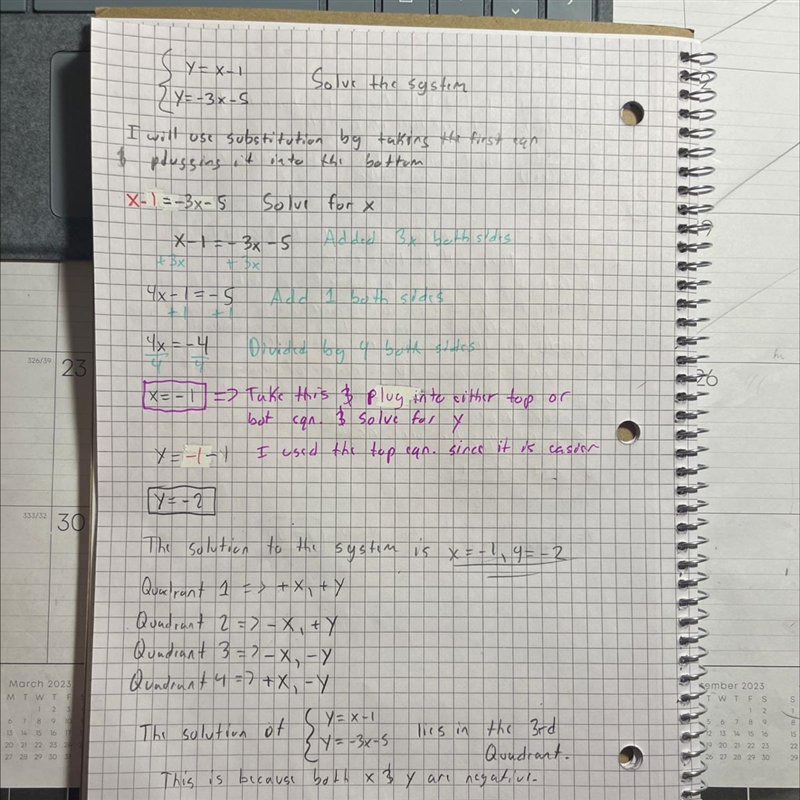 y = x-1
y = -3x-5
Solve the system
I will use substitution by taking the first eqn
& plugging it into the bottom
x-1 = -3x-5 Solve for x
x-1 = -3x-5 Added 3x both sides
+3x +3x
4x-1 = -5 Add 1 both sides
+1 +1
4x = -4 Divided by 4 both sides
4 4
x = -1 => Take this & plug into either top or
bot eqn. & solve for y
y = -1-1 I used the top eqn. since it is easier
y = -2
The solution to the system is x = -1, y = -2
Quadrant 1 => +x, +y
Quadrant 2 => -x, +y
Quadrant 3 => -x, -y
Quadrant 4 => +x, -y
The solution of { y = x-1
y = -3x-5 lies in the 3rd
Quadrant.
This is because both x & y are negative.
326/39 23
333/32 30
26
March 2023
M T W T F
1 2 3
6 7 8 9 10
13 14 15 16 17
20 21 22 23 24
27 28 29 30 31